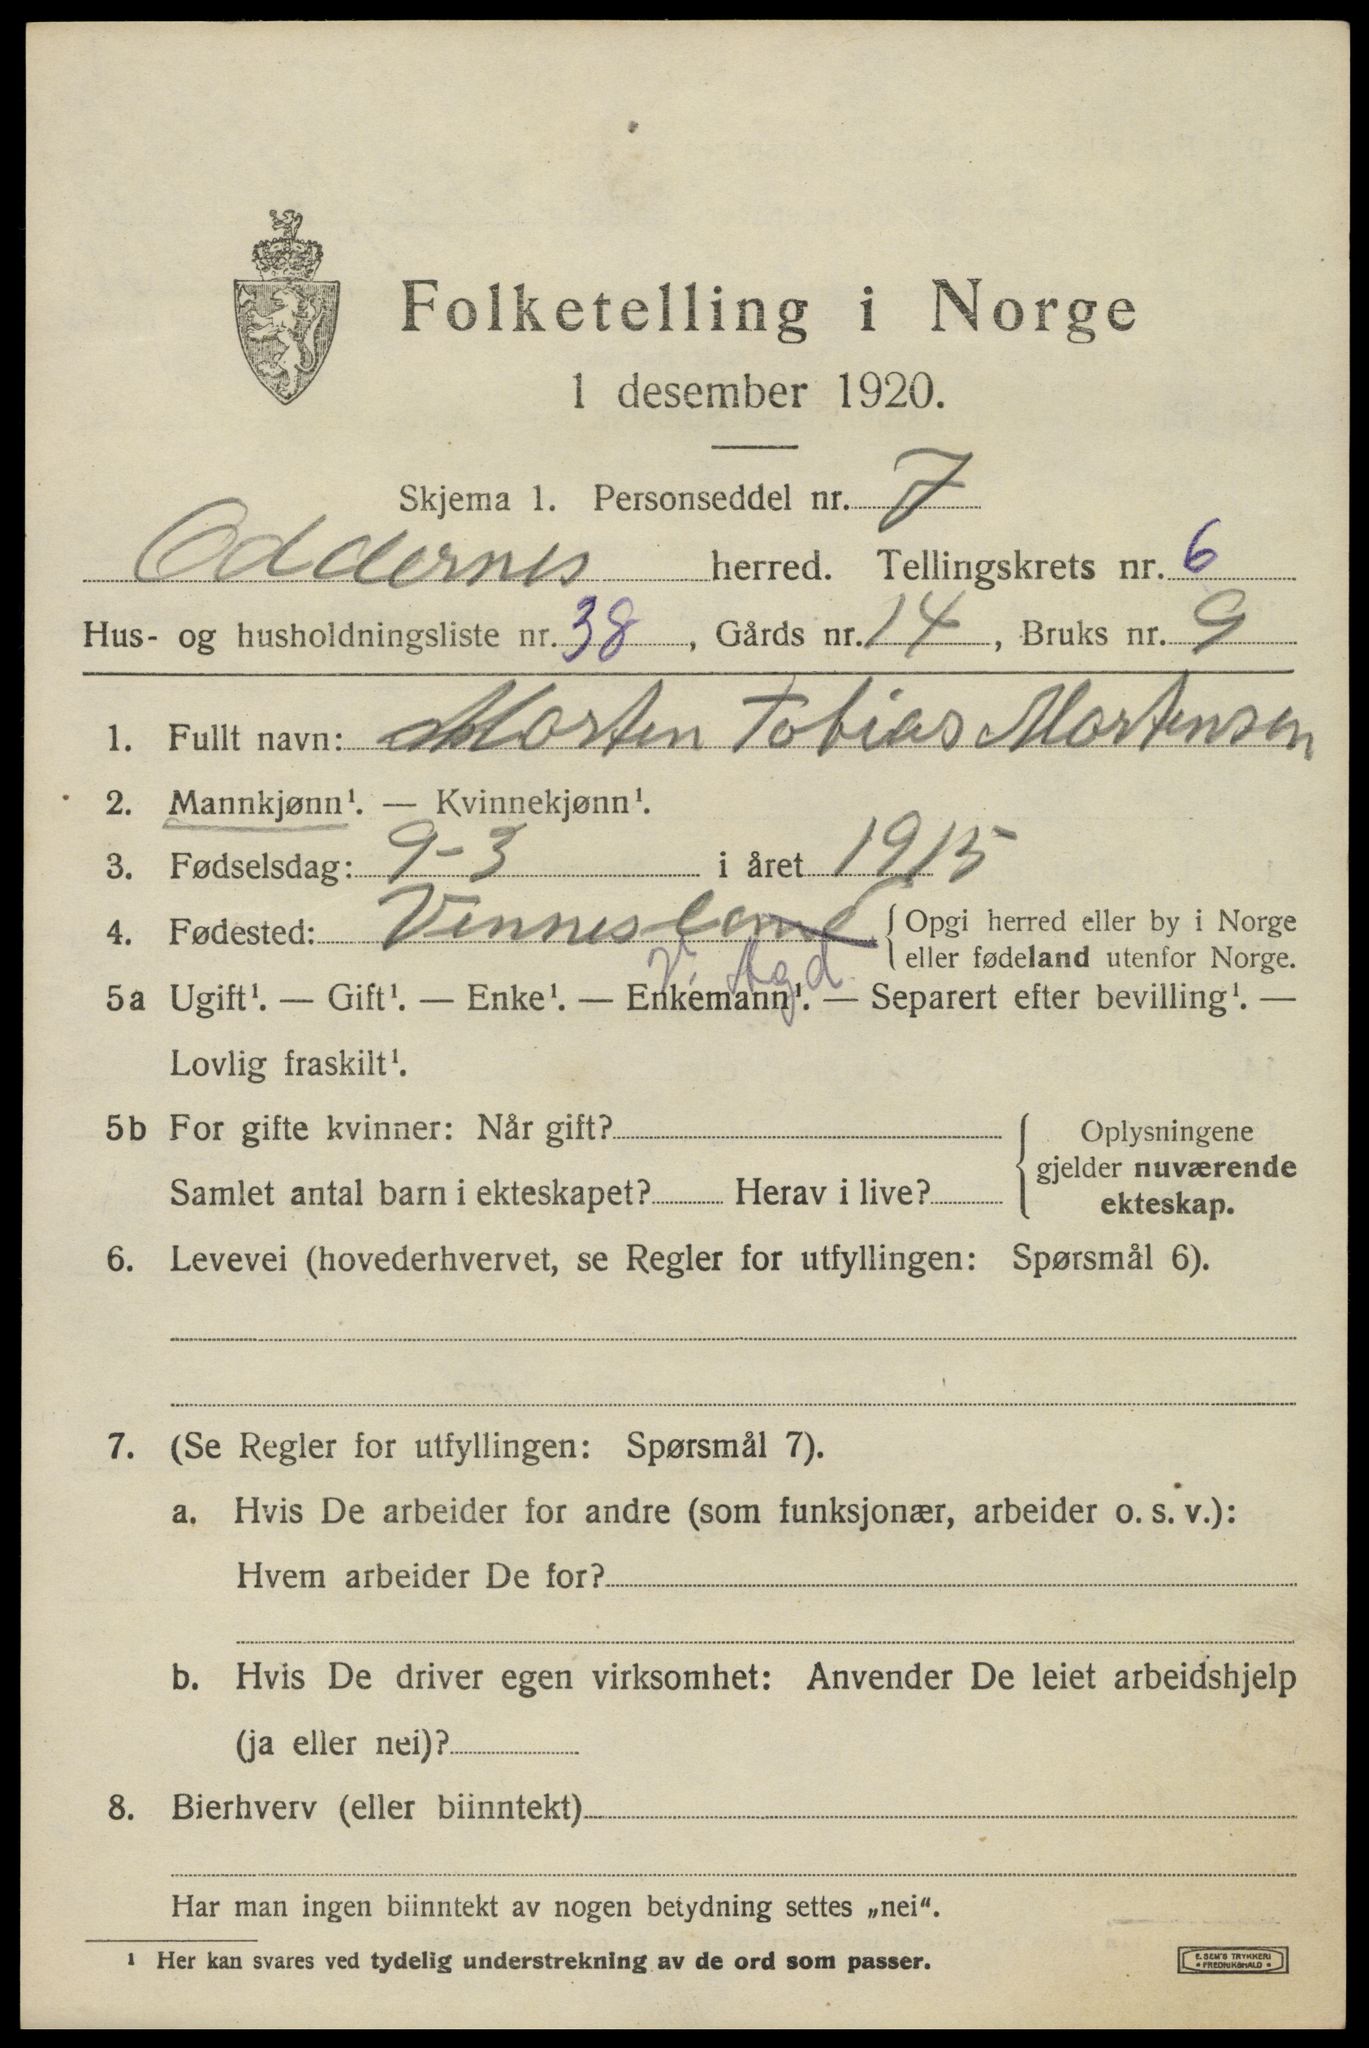 Folketelling i Norge
1 desember 1920.
Skjema 1. Personseddel nr. 7
Oddernes herred. Tellingskrets nr. 6
Hus- og husholdningsliste nr. 38, Gårds nr. 14, Bruks nr. 9
1. Fullt navn: Morten Tobias Mortensen
2. Mannkjønn¹. — Kvinnekjønn¹.
3. Fødselsdag: 9-3 i året 1915
4. Fødested: Vennesland { Opgi herred eller by i Norge
eller fødeland utenfor Norge.
V. Agd
5a Ugift¹. — Gift¹. — Enke¹. — Enkemann¹. — Separert efter bevilling¹. —
Lovlig fraskilt¹.
5b For gifte kvinner: Når gift? { Oplysningene
gjelder nuværende
Samlet antal barn i ekteskapet? Herav i live?
ekteskap.
6. Levevei (hovederhvervet, se Regler for utfyllingen: Spørsmål 6).
7. (Se Regler for utfyllingen: Spørsmål 7).
a. Hvis De arbeider for andre (som funksjonær, arbeider o. s. v.):
Hvem arbeider De for?
b. Hvis De driver egen virksomhet: Anvender De leiet arbeidshjelp
(ja eller nei)?
8. Bierhverv (eller biinntekt)
Har man ingen biinntekt av nogen betydning settes „nei“.
¹ Her kan svares ved tydelig understrekning av de ord som passer.
E. SEM'S TRYKKERI
* FREDRIKSHALD *